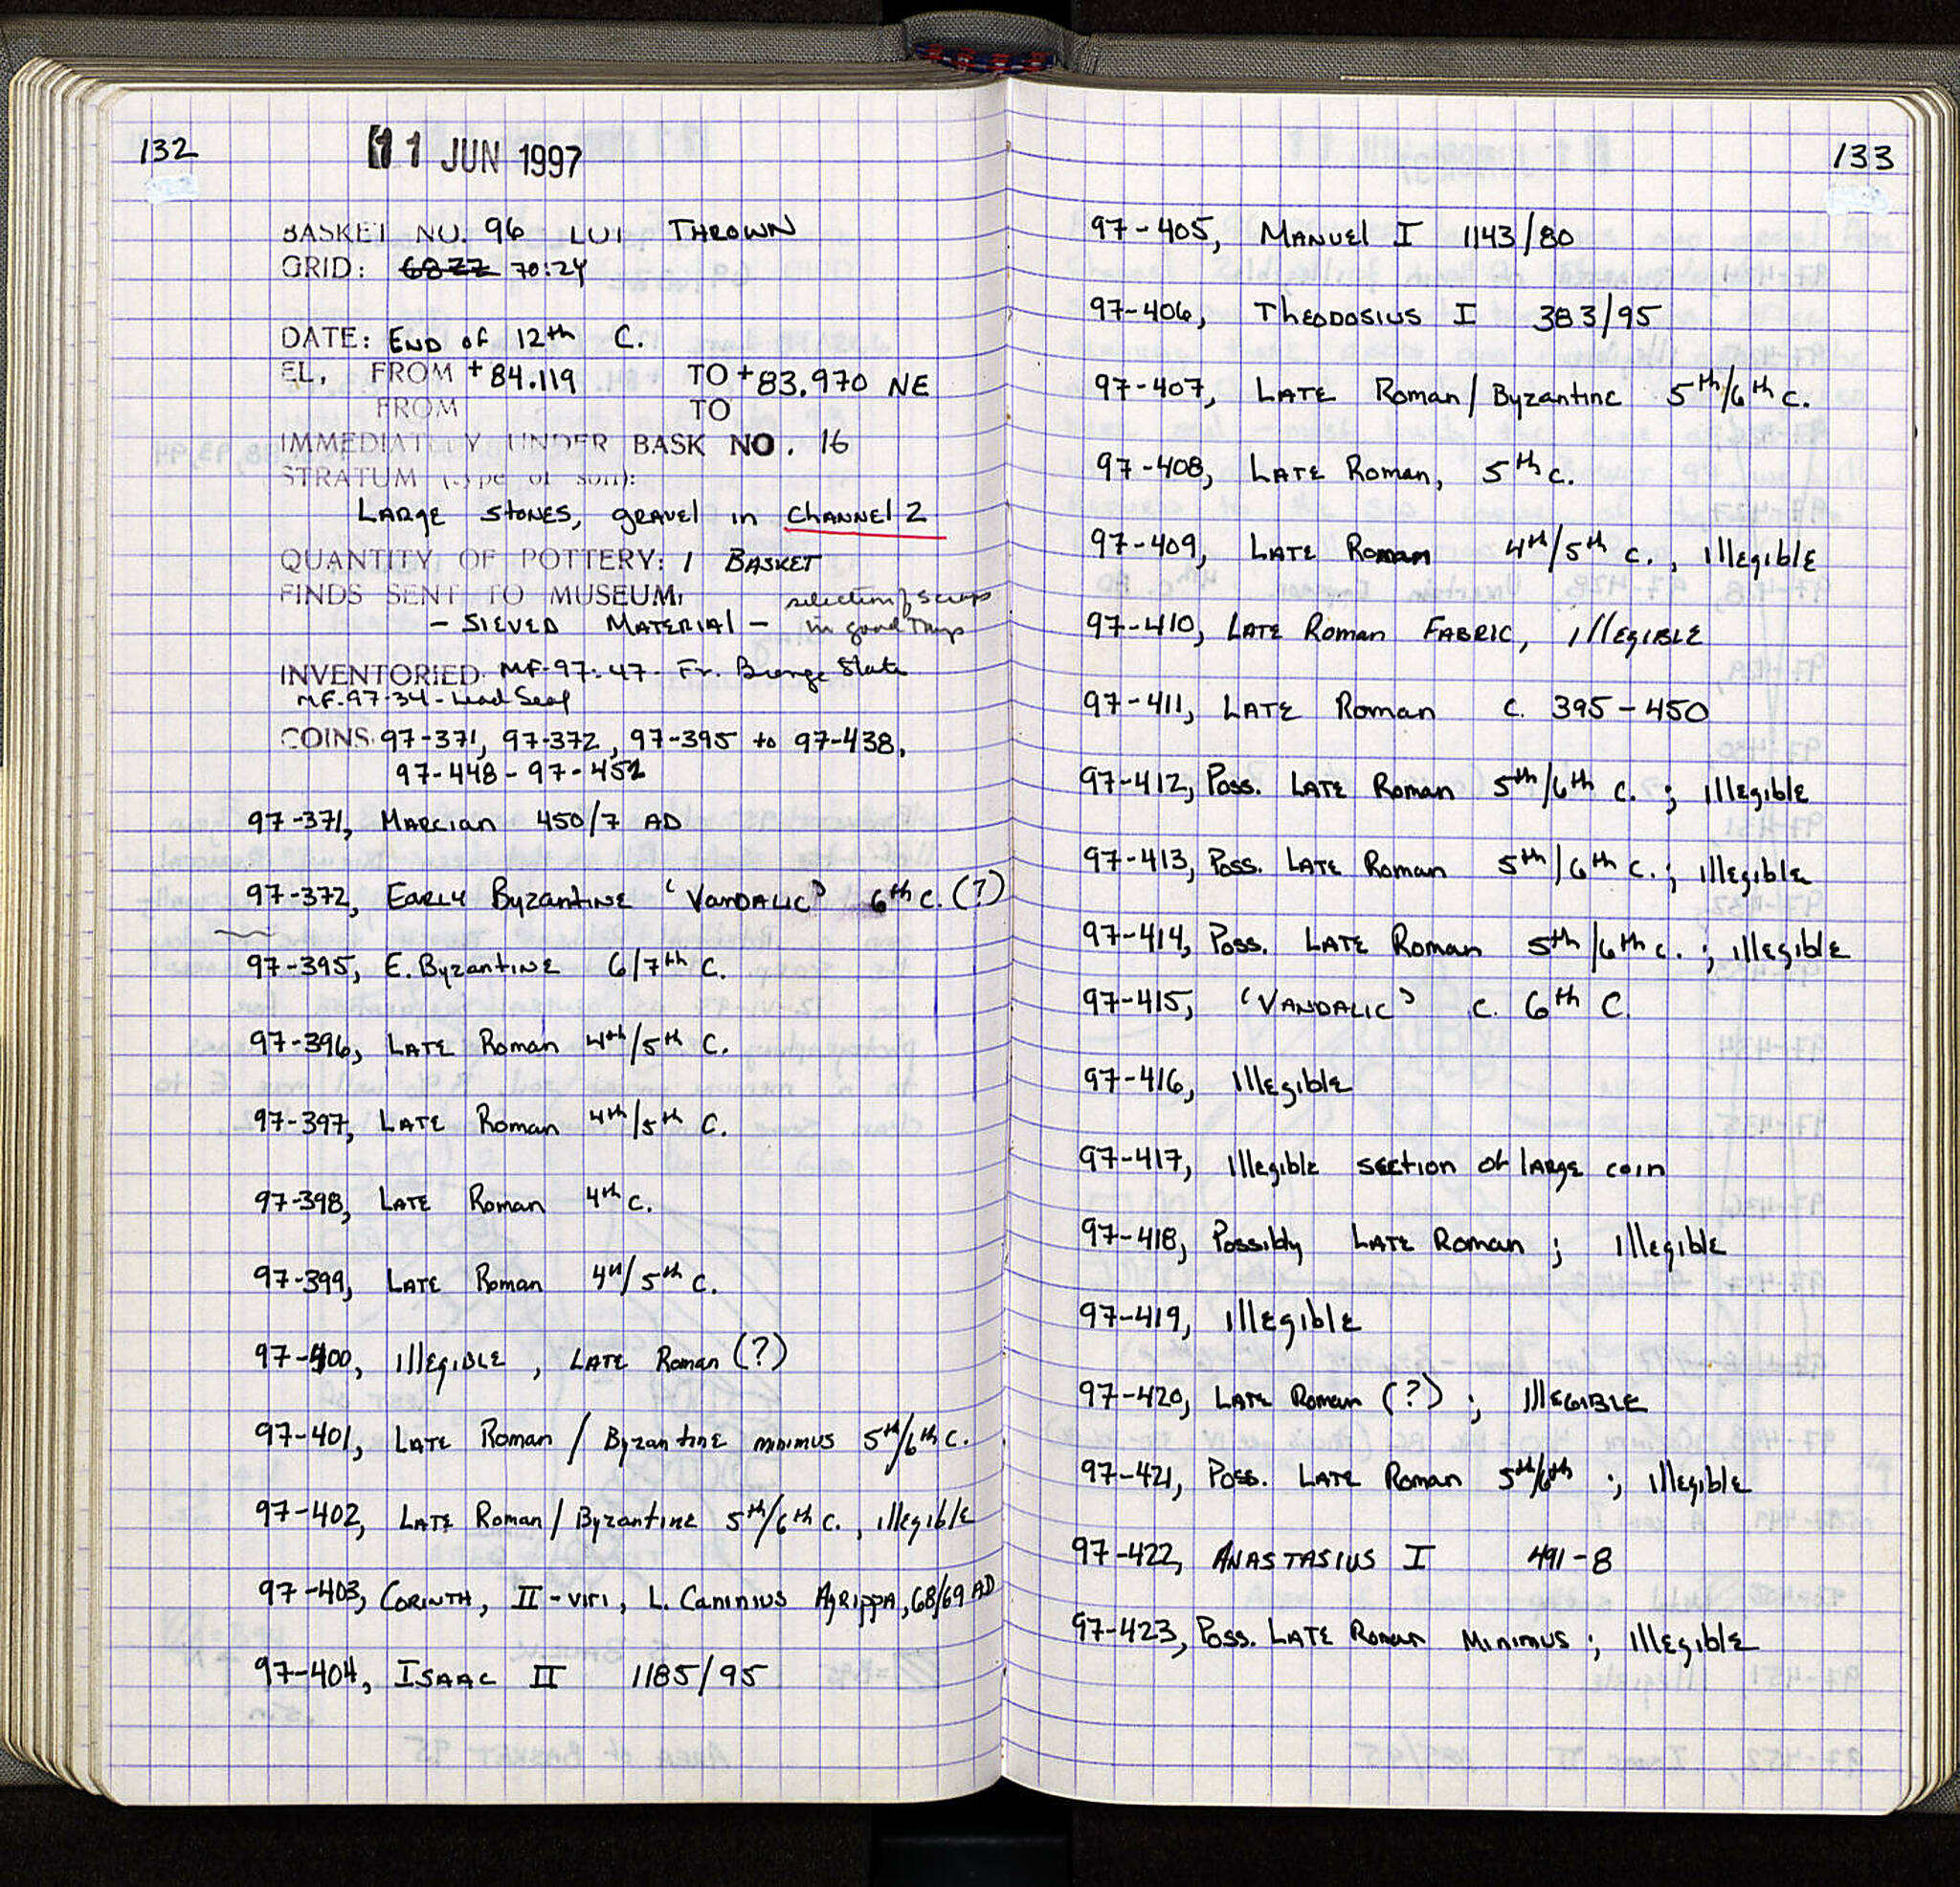 132
11 JUN 1997
BASKET NO. 96 LOT THROWN
GRID: 70:24
DATE: END of 12th C.
EL. FROM +84.119 TO +83.970 NE
FROM TO
IMMEDIATELY UNDER BASK NO. 16
STRATUM (type of soil):
LARGE STONES, gravel in CHANNEL 2
QUANTITY OF POTTERY: 1 BASKET
FINDS SENT TO MUSEUM: selection of scraps
- SIEVED MATERIAL - in good
INVENTORIED MF-97-47- Fr. Bronge State
MF-97-34 - Lead Seal
COINS 97-371, 97-372, 97-395 to 97-438,
97-448 - 97-452
97-371, MARCIAN 450/7 AD
97-372, EARLY Byzantine 'VANDALIC' 6th C. (?)
97-395, E. Byzantine 6/7th C.
97-396, LATE Roman 4th/5th C.
97-397, LATE Roman 4th/5th C.
97-398, LATE Roman 4th C.
97-399, LATE Roman 4th/5th C.
97-400, IllEgIBLE, LATE Roman (?)
97-401, LATE Roman / Byzantine minimus 5th/6th C.
97-402, LATE Roman / Byzantine 5th/6th C., illegible
97-403, CORINTH, II-viri, L. Caninius AgRippA, 68/69 AD
97-404, ISAAC II 1185/95
133
97-405, MANUEL I 1143/80
97-406, THEODOSIUS I 383/95
97-407, LATE Roman / Byzantine 5th/6th C.
97-408, LATE Roman, 5th C.
97-409, LATE Roman 4th/5th C., Illegible
97-410, LATE Roman FABRIC, IllEgIBLE
97-411, LATE Roman C. 395-450
97-412, Poss. LATE Roman 5th/6th C.; Illegible
97-413, Poss. LATE Roman 5th/6th C.; Illegible
97-414, Poss. LATE Roman 5th/6th C.; Illegible
97-415, 'VANDALIC' C. 6th C.
97-416, Illegible
97-417, Illegible section of large coin
97-418, Possibly LATE Roman; Illegible
97-419, Illegible
97-420, LATE Roman (?); IllEGIBLE
97-421, Poss. LATE Roman 5th/6th; Illegible
97-422, ANASTASIUS I 491-8
97-423, Poss. LATE Roman Minimus; Illegible